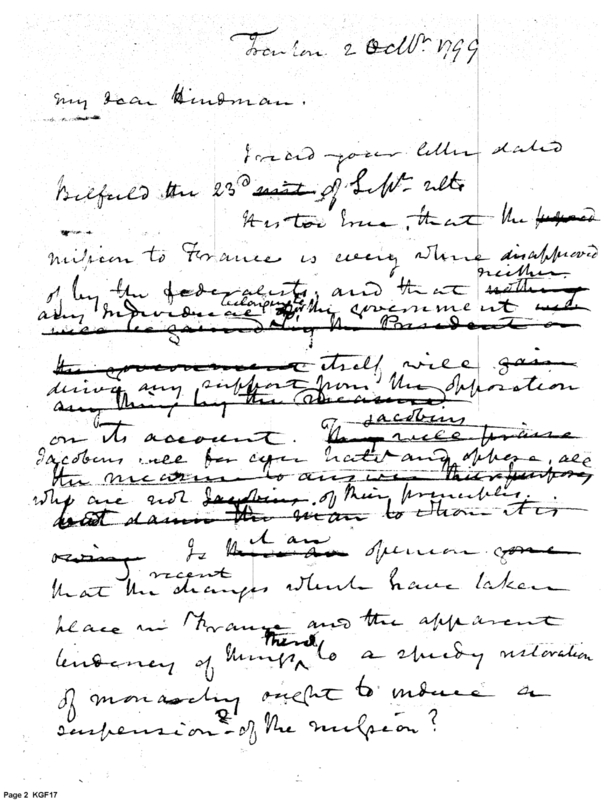 Trenton 2 Octbr. 1799
My dear Hindman.
I rec'd your letter dated
Bilfield the 23d inst of Sept. ulto
It is too true, that the proposed
mission to France is every where disapproved
of by the federalists, and that nothing neither
any Individual belonging to the government will
will be gained by the President or
the government itself will gain
derive any support from the opposition
any thing by the measure
on its account. The Jacobins They will praise
Jacobins will for ever hate and oppose, all
the measure to answer their purposes
who are not Jacobins of their principles.
and damn the man to whom it is
owing Is there an it an opinion gone
that the recent changes which have taken
place in France and the apparent
tendency of things there to a speedy restoration
of monarchy ought to induce a
suspension of the mission?
Page 2 KGF17